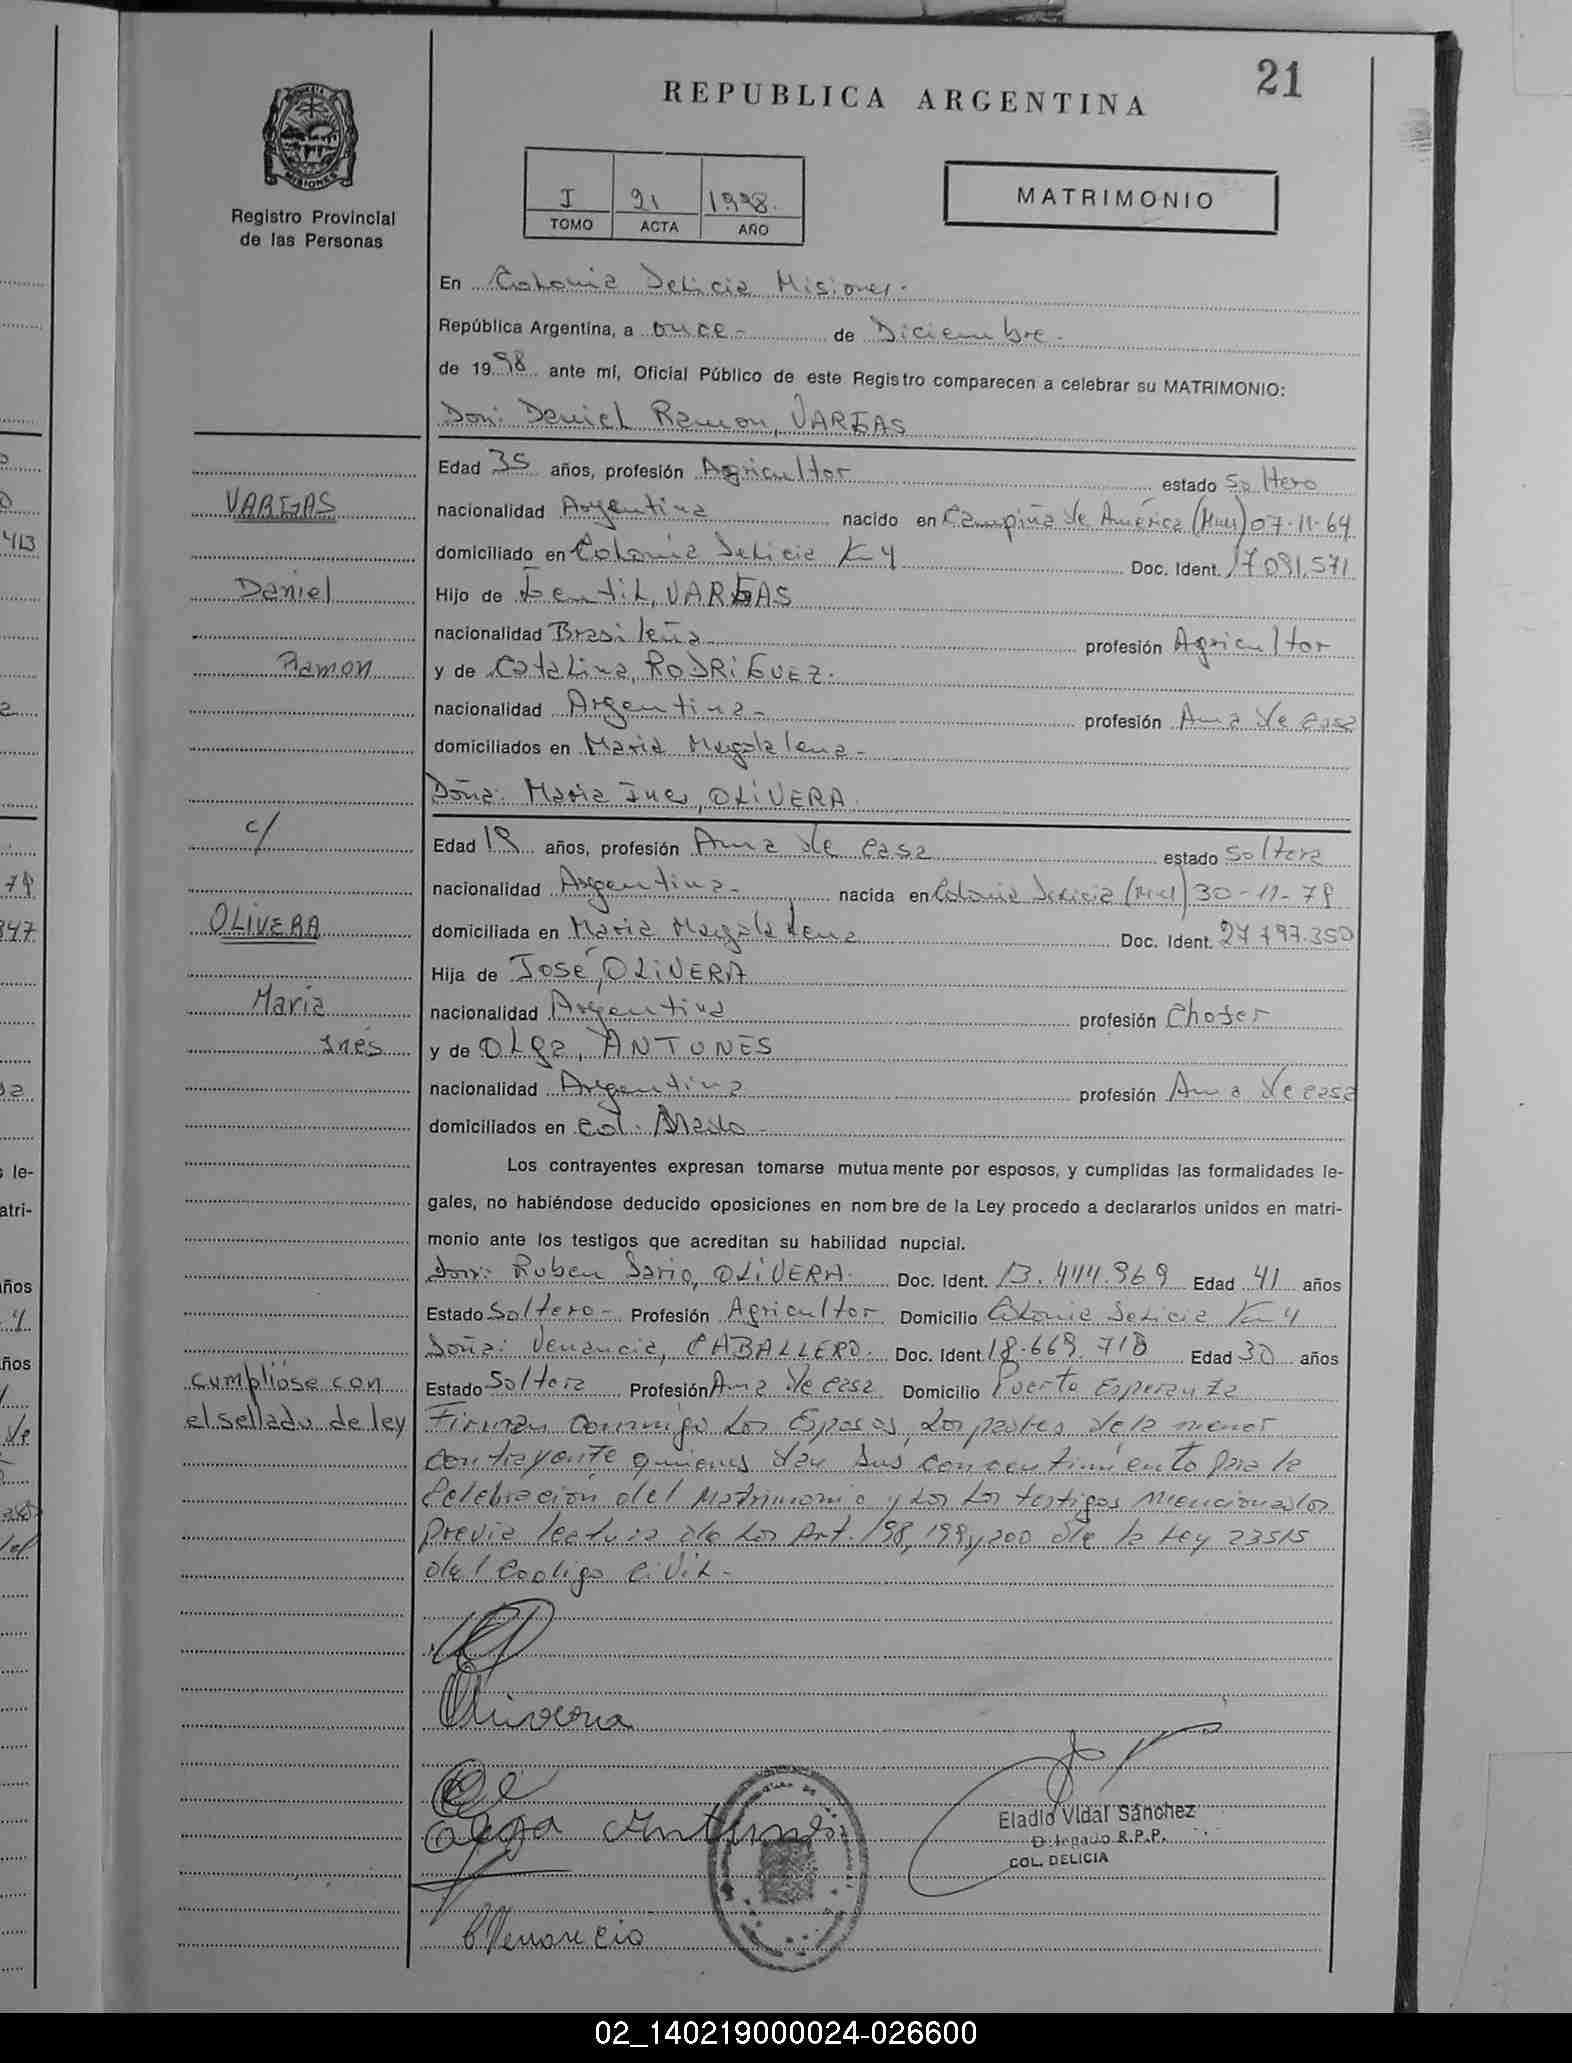 21
REPUBLICA ARGENTINA
MISIONES
Registro Provincial
de las Personas
I 21 1998.
TOMO ACTA AÑO
MATRIMONIO
En Colonia Delicia Misiones.
República Argentina, a once - de Diciembre.
de 1998 ante mí, Oficial Público de este Registro comparecen a celebrar su MATRIMONIO:
Don: Daniel Ramon, VARGAS
Edad 35 años, profesión Agricultor estado Soltero
VARGAS
nacionalidad Argentina nacido en Campiña de América (Mnes) 07-11-64
domiciliado en Colonia Delicia K 4 Doc. Ident. 17 091.571
Daniel
Hijo de Gentil, VARGAS
nacionalidad Brasileña profesión Agricultor
Ramon
y de Catalina, RODRIGUEZ.
nacionalidad Argentina - profesión Ama de casa
domiciliados en Maria Magdalena -
Doña: Maria Ines, OLIVERA.
c/
Edad 19 años, profesión Ama de casa estado Soltera
nacionalidad Argentina - nacida en Colonia Delicia (Mnes) 30-11-79
OLIVERA
domiciliada en Maria Magdalena Doc. Ident. 27 797.350
Hija de José, OLIVERA
Maria
nacionalidad Argentina profesión Chofer
Inés
y de Olga, ANTUNES
nacionalidad Argentina profesión Ama de casa
domiciliados en Col.
Los contrayentes expresan tomarse mutuamente por esposos, y cumplidas las formalidades le-
gales, no habiéndose deducido oposiciones en nombre de la Ley procedo a declararlos unidos en matri-
monio ante los testigos que acreditan su habilidad nupcial.
Don: Ruben Dario, OLIVERA. Doc. Ident. 13.444.969 Edad 41 años
Estado Soltero - Profesión Agricultor Domicilio Colonia Delicia Km 4
Doña: Venancia, CABALLERO. Doc. Ident. 18.669.718 Edad 30 años
Estado Soltera Profesión Ama de casa Domicilio Puerto Esperanza
cumplióse con
el sellado de ley
Firman conmigo Los Esposos, Los padres de la menor
contrayente quienes dan sus consentimiento para la
Celebracion del Matrimonio y Los Los testigos Mencionados
previa lectura de Los Art. 198, 199 y 200 de la Ley 23515
del Codigo Civil -
Olivera
Olga Antunes
Eladio Vidal Sánchez
Delegado R.P.P.
COL. DELICIA
C Venancia
02_140219000024-026600